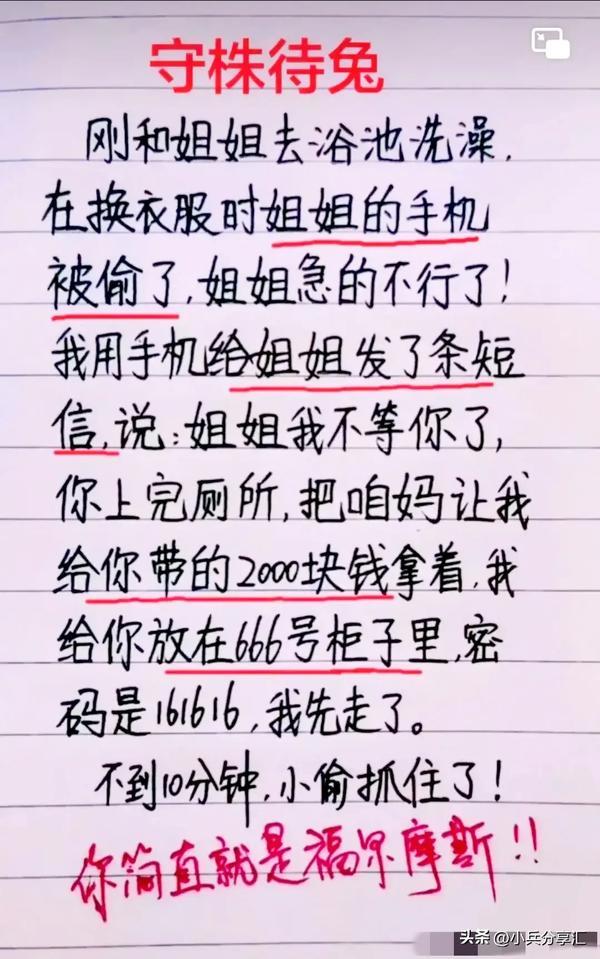 守株待兔
刚和姐姐去浴池洗澡.
在换衣服时姐姐的手机
被偷了,姐姐急的不行了!
我用手机给姐姐发了条短
信,说:姐姐我不等你了,
你上完厕所,把咱妈让我
给你带的2000块钱拿着,我
给你放在666号柜子里,密
码是161616,我先走了。
不到10分钟,小偷抓住了!
你简直就是福尔摩斯!!
头条@小兵分享汇